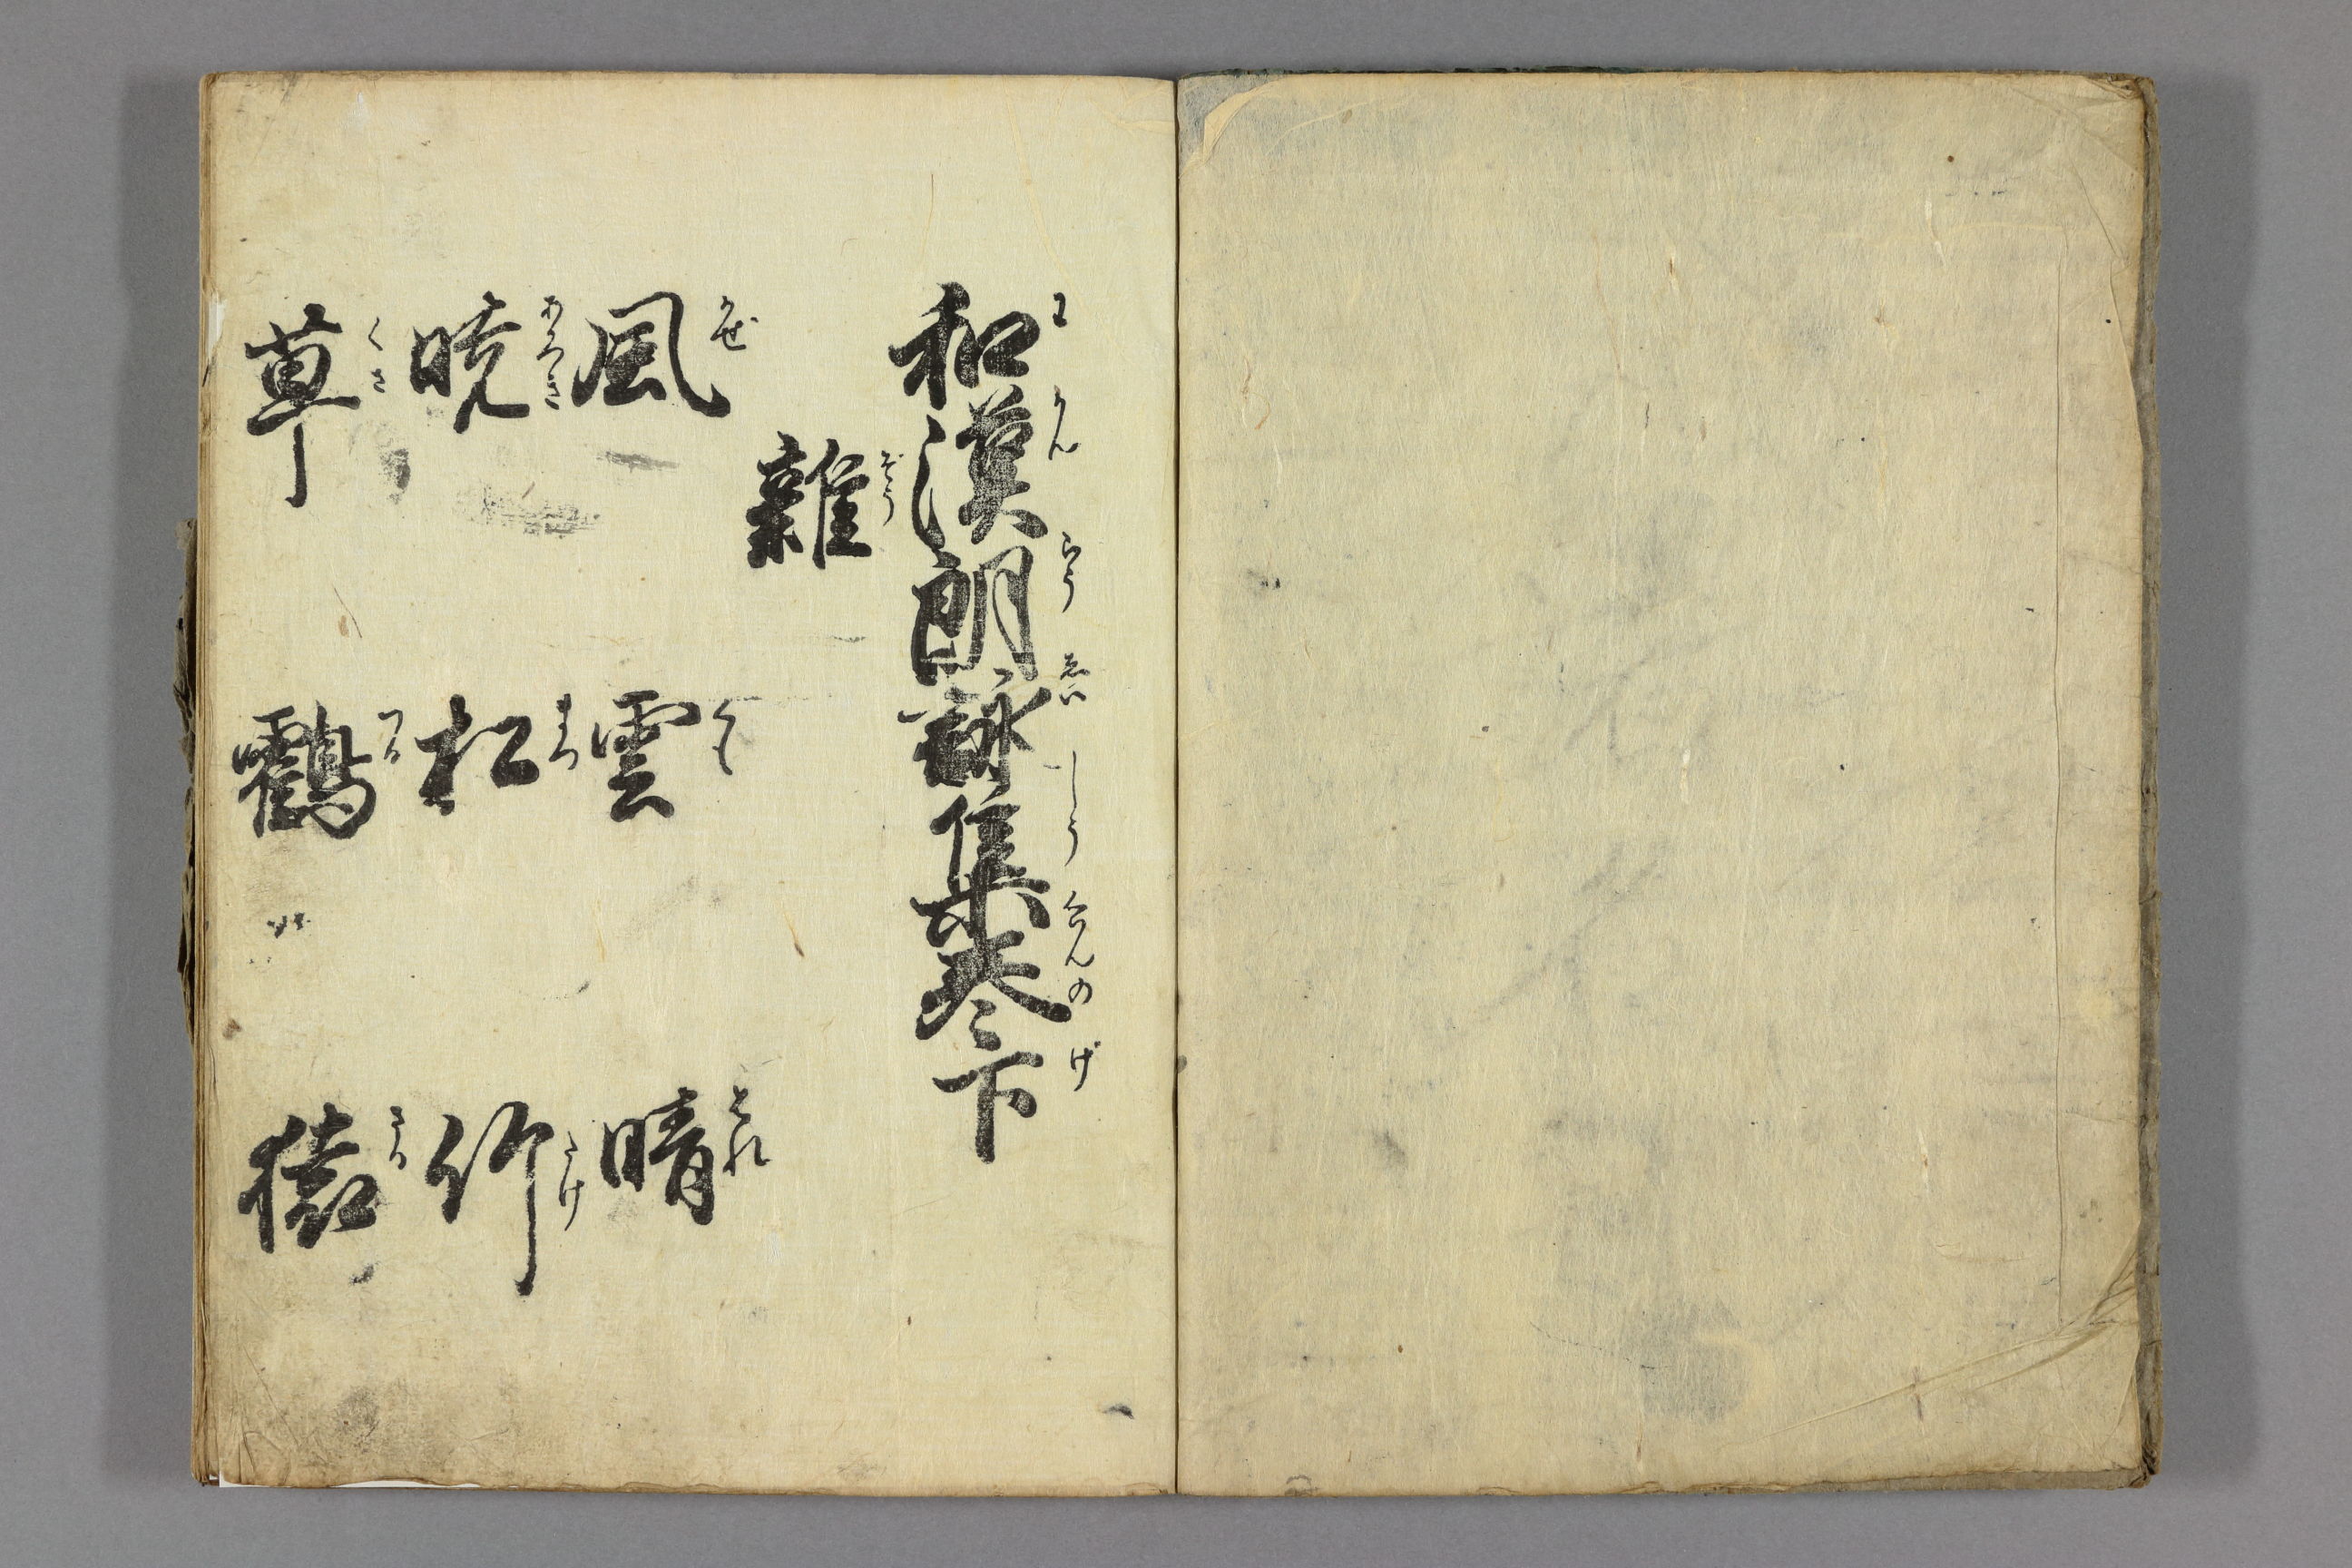 和漢朗詠集巻下
わかんらうゑいしうくわんのげ
雑
ざう
風 雲 晴
かぜ くも はれ
暁 松 竹
あかつき まつ たけ
草 鶴 猿
くさ つる さる